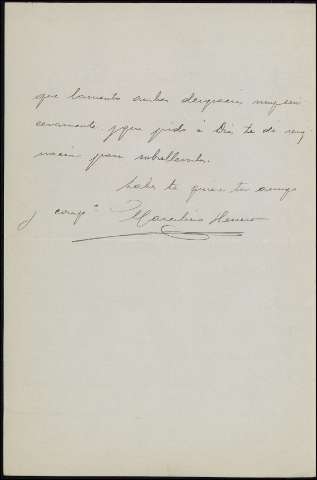 que lamento ambas desgracias muy sin
ceramente y que pido á Dios te dé resig
nación para sobrellevarlas.
Sabes te quiere tu amigo
y comp.º Marcelino Herrero